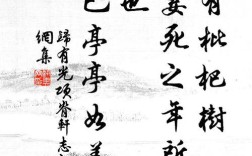 有枇杷樹
妻死之年所
也
已亭亭如
歸有光項脊軒志
網集